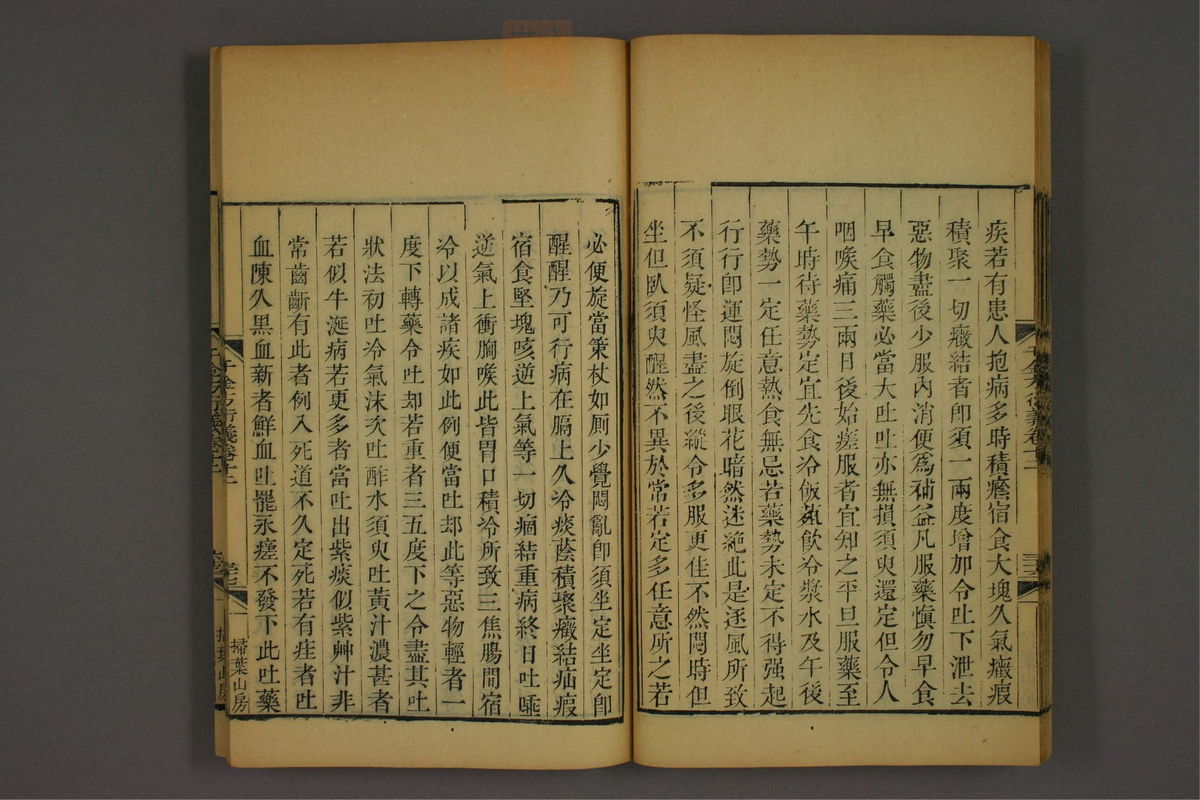 疾若有患人抱病多時積癊宿食大塊久氣癥瘕
積聚一切癥結者卽須一兩度增加令吐下泄去
惡物盡後少服內消便爲補益凡服藥愼勿早食
早食觸藥必當大吐吐亦無損須臾還定但令人
咽喉痛三兩日後始瘥服者宜知之平旦服藥至
午時待藥勢定宜先食冷飯菰飲冷漿水及午後
藥勢一定任意熱食無忌若藥勢未定不得强起
行行卽運悶旋倒眼花暗然迷絶此是逐風所致
不須疑怪風盡之後縱令多服更佳不然悶時但
坐但臥須臾醒然不異於常若定多任意所之若
必便旋當策杖如厠少覺悶亂卽須坐定坐定卽
醒醒乃可行病在膈上久冷痰蔭積聚癥結疝瘕
宿食堅塊咳逆上氣等一切痼結重病終日吐唾
逆氣上衝胸喉此皆胃口積冷所致三焦腸間宿
冷以成諸疾如此例便當吐却此等惡物輕者一
度下轉藥令吐却若重者三五度下之令盡其吐
狀法初吐冷氣沫次吐酢水須臾吐黃汁濃甚者
若似牛涎病若更多者當吐出紫痰似紫艸汁非
常齒齗有此者例入死道不久定死若有疰者吐
血陳久黑血新者鮮血吐罷永瘥不發下此吐藥
千金方衍義卷十二
掃葉山房